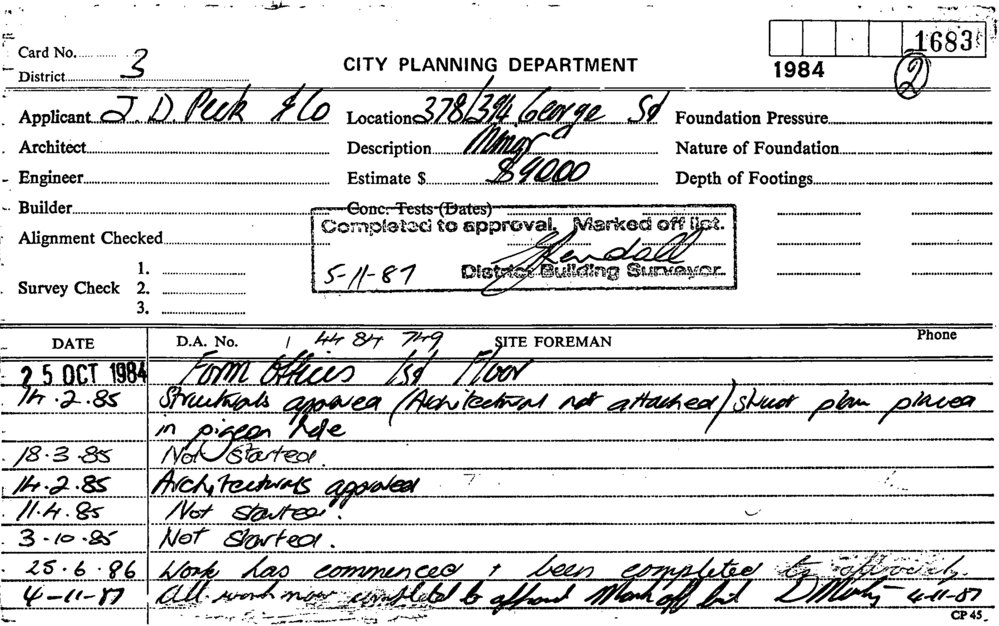 1683
Card No. 3
District
CITY PLANNING DEPARTMENT
1984
2
Applicant J. D. Peek & Co
Location 378/394 George St
Foundation Pressure
Architect
Description Minor
Nature of Foundation
Engineer
Estimate $ $9000
Depth of Footings
Builder
Conc. Tests (Dates)
Alignment Checked
Completed to approval. Marked off list.
Kendall
5-11-87 District Building Surveyor.
Survey Check 1.
2.
3.
DATE D.A. No. 44 84 749 SITE FOREMAN Phone
25 OCT 1984 Form Offices 1st Floor
14.2.85 Structurals approved (Architectural not attached) struct plan placed
in pigeon hole
18.3.85 Not Started.
14.2.85 Architecturals approved
11.4.85 Not started.
3-10-85 Not Started.
25.6.86 Work has commenced & been completed
4-11-87 All work now completed to approval Mark off list 4-11-87
CP 45